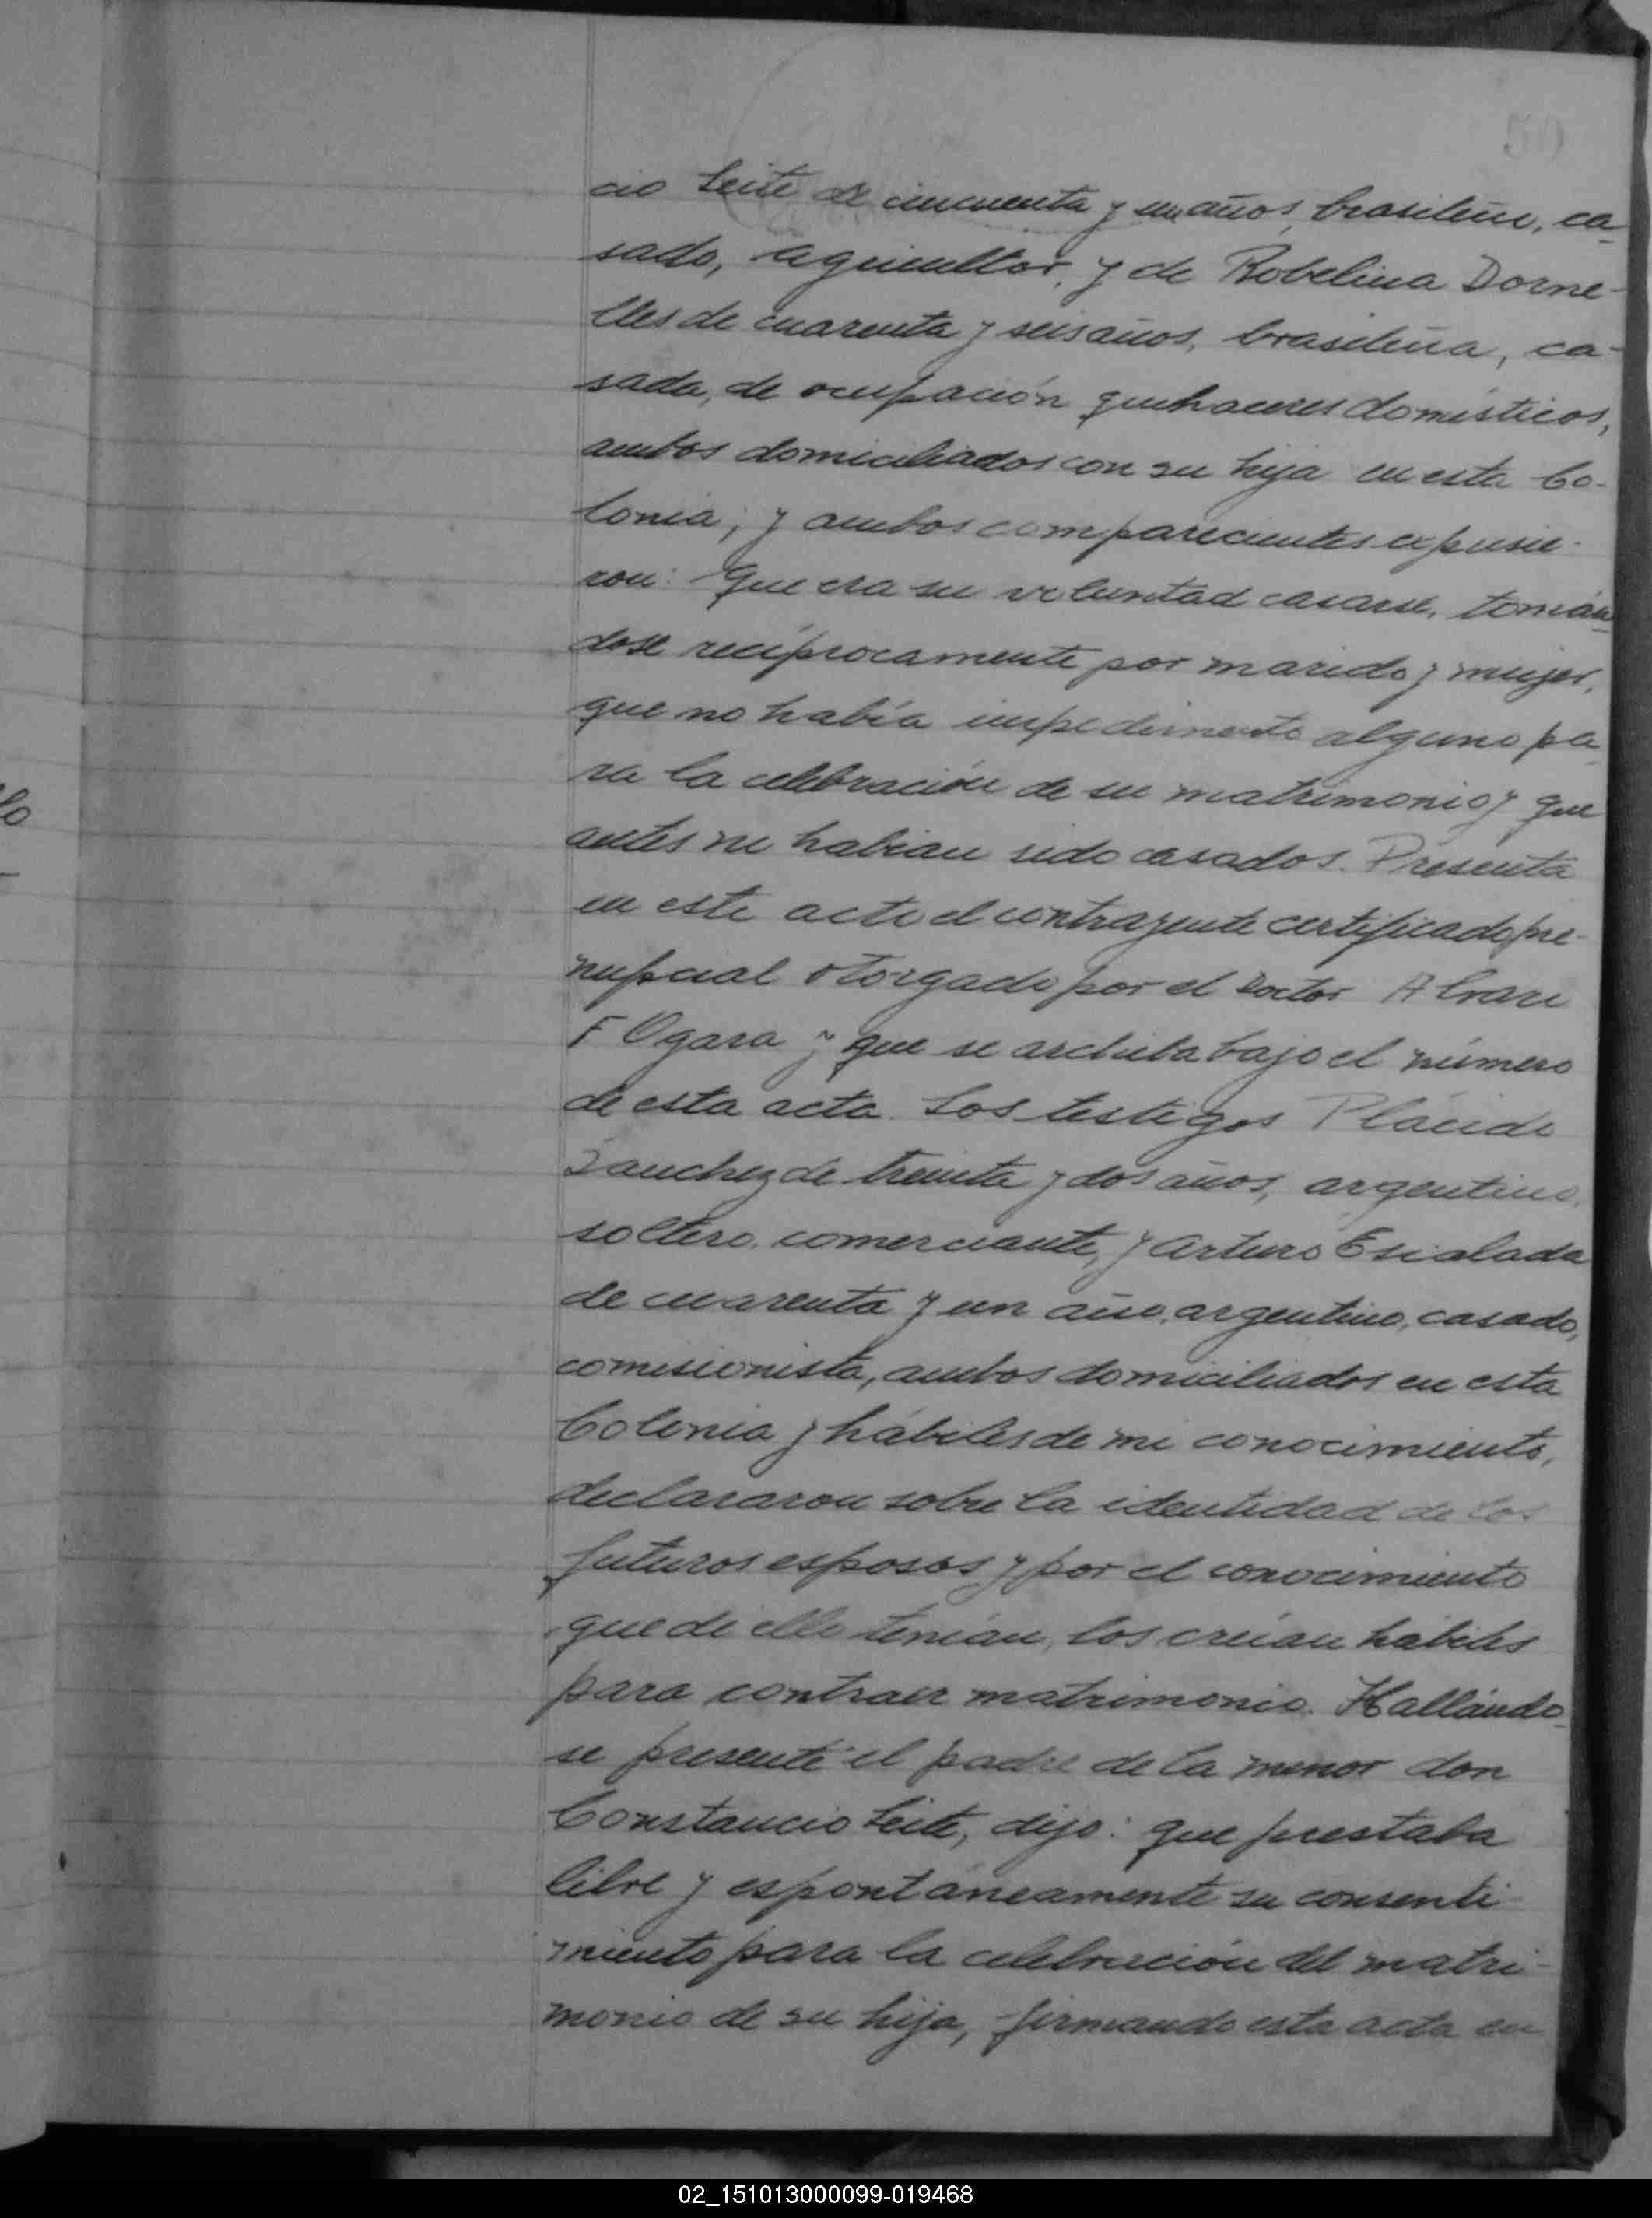 50
cio Leite de cincuenta y un años, brasileño, ca-
sado, agricultor, y de Robelina Dorne-
lles de cuarenta y seis años, brasileña, ca-
sada, de ocupación quehaceres domésticos,
ambos domiciliados con su hija en esta Co-
lonia; y ambos comparecientes expusie-
ron: Que era su voluntad casarse, tomán-
dose recíprocamente por marido y mujer,
que no había impedimento alguno pa-
ra la celebración de su matrimonio y que
antes no habían sido casados. Presenta
en este acto el contrayente certificado pre-
nupcial otorgado por el Doctor Alvaro
F Ogara y que se archiva bajo el número
de esta acta. Los testigos Plácido
Sanchez de treinta y dos años, argentino,
soltero, comerciante, y Arturo Escalada
de cuarenta y un año, argentino, casado,
comisionista, ambos domiciliados en esta
Colonia y hábiles de mi conocimiento,
declararon sobre la identidad de los
futuros esposos y por el conocimiento
que de ello tenían, los creían hábiles
para contraer matrimonio. Hallándo-
se presente el padre de la menor don
Constancio Leite, dijo: que prestaba
libre y espontáneamente su consenti-
miento para la celebración del matri-
monio de su hija, firmando esta acta en
02_151013000099-019468